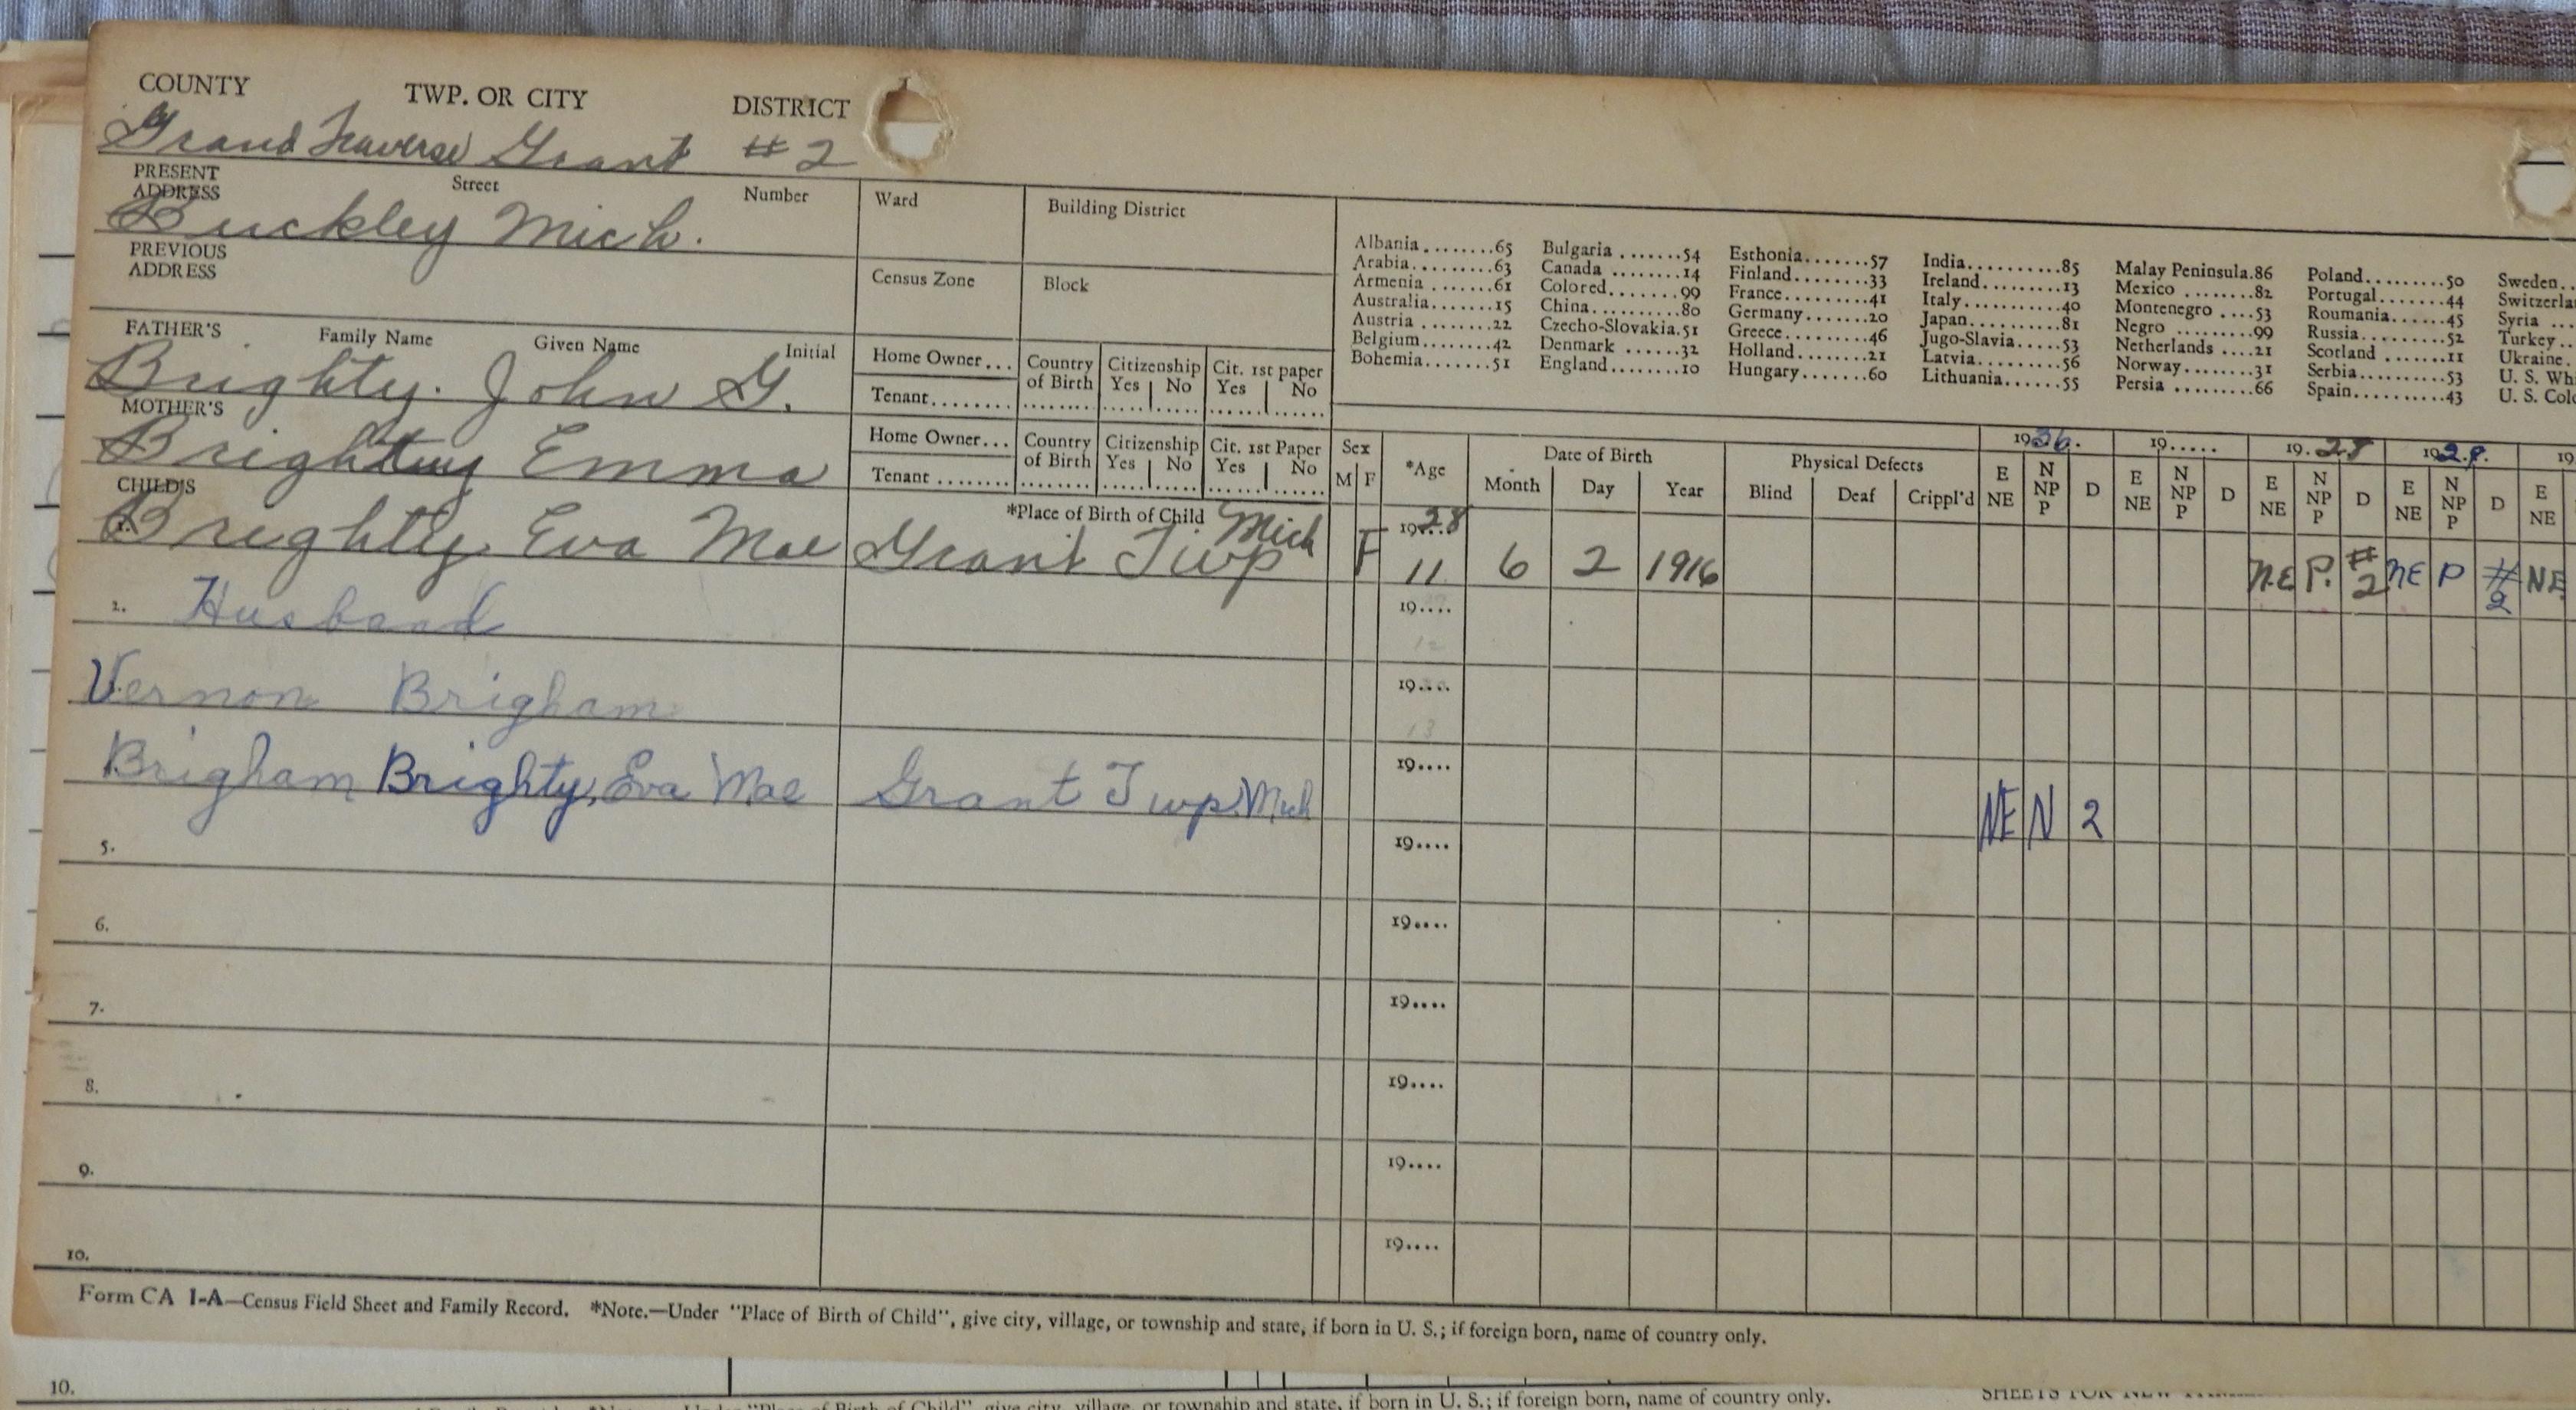 COUNTY TWP. OR CITY DISTRICT
Grand Traverse Grant #2
PRESENT ADDRESS Street Number Ward Building District
Buckley Mich.
PREVIOUS ADDRESS Census Zone Block
Albania........65 Bulgaria .......54 Esthonia.......57 India..........85 Malay Peninsula.86 Poland..........50 Sweden..
Arabia.........63 Canada ........14 Finland........33 Ireland.........13 Mexico ........82 Portugal.......44
Armenia .......61 Colored.......99 France.........41 Italy...........40 Montenegro ....53 Roumania......45 Syria ...
Australia.......15 China..........80 Germany.......20 Japan..........81 Negro .........99 Russia.........52 Turkey..
Austria ........22 Czecho-Slovakia.51 Greece.........46 Jugo-Slavia.....53 Netherlands ....21 Scotland .......11 Ukraine.
Belgium........42 Denmark ......32 Holland........21 Latvia..........56 Norway........31 Serbia..........53
Bohemia.......51 England.......10 Hungary.......60 Lithuania......55 Persia .........66 Spain..........43
FATHER'S Family Name Given Name Initial Home Owner... Country of Birth Citizenship Yes No Cit. 1st paper Yes No
Brighty. John G. Tenant........
MOTHER'S Home Owner... Country of Birth Citizenship Yes No Cit. 1st Paper Yes No
Brighty Emma Tenant ........
Sex M F *Age Date of Birth Month Day Year Physical Defects Blind Deaf Crippl'd 1936. E NE N NP P D 19..... E NE N NP P D 19.28 E NE N NP P D 19 E NE N NP P D 19 E NE
CHILD'S *Place of Birth of Child
1. Brighty Eva Mae Grant Twp Mich F 1928 11 6 2 1916 N.E P. #2 NE P #2 NE
2. Husband 19.... 12
Vernon Brigham 19.... 13
Brigham Brighty, Eva Mae Grant Twp. Mich 19.... NE N 2
5. 19....
6. 19....
7. 19....
8. 19....
9. 19....
10. 19....
Form CA 1-A—Census Field Sheet and Family Record. *Note.—Under "Place of Birth of Child", give city, village, or township and state, if born in U. S.; if foreign born, name of country only.
10.
village, or township and state, if born in U. S.; if foreign born, name of country only.